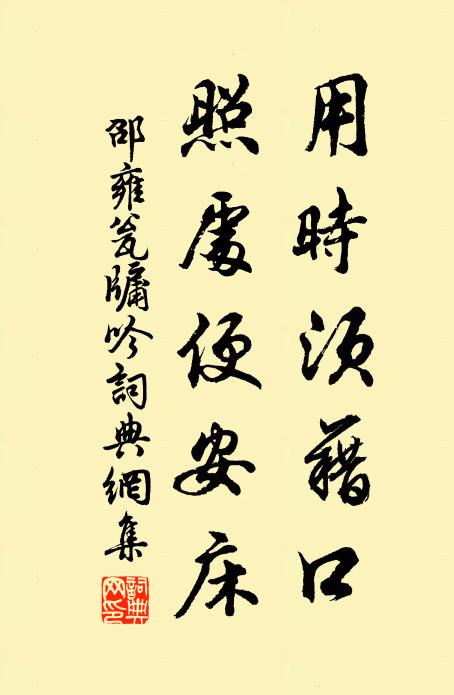 用時須藉口
照處便安床
邵雍瓮牖吟詞典網集
詞典網印